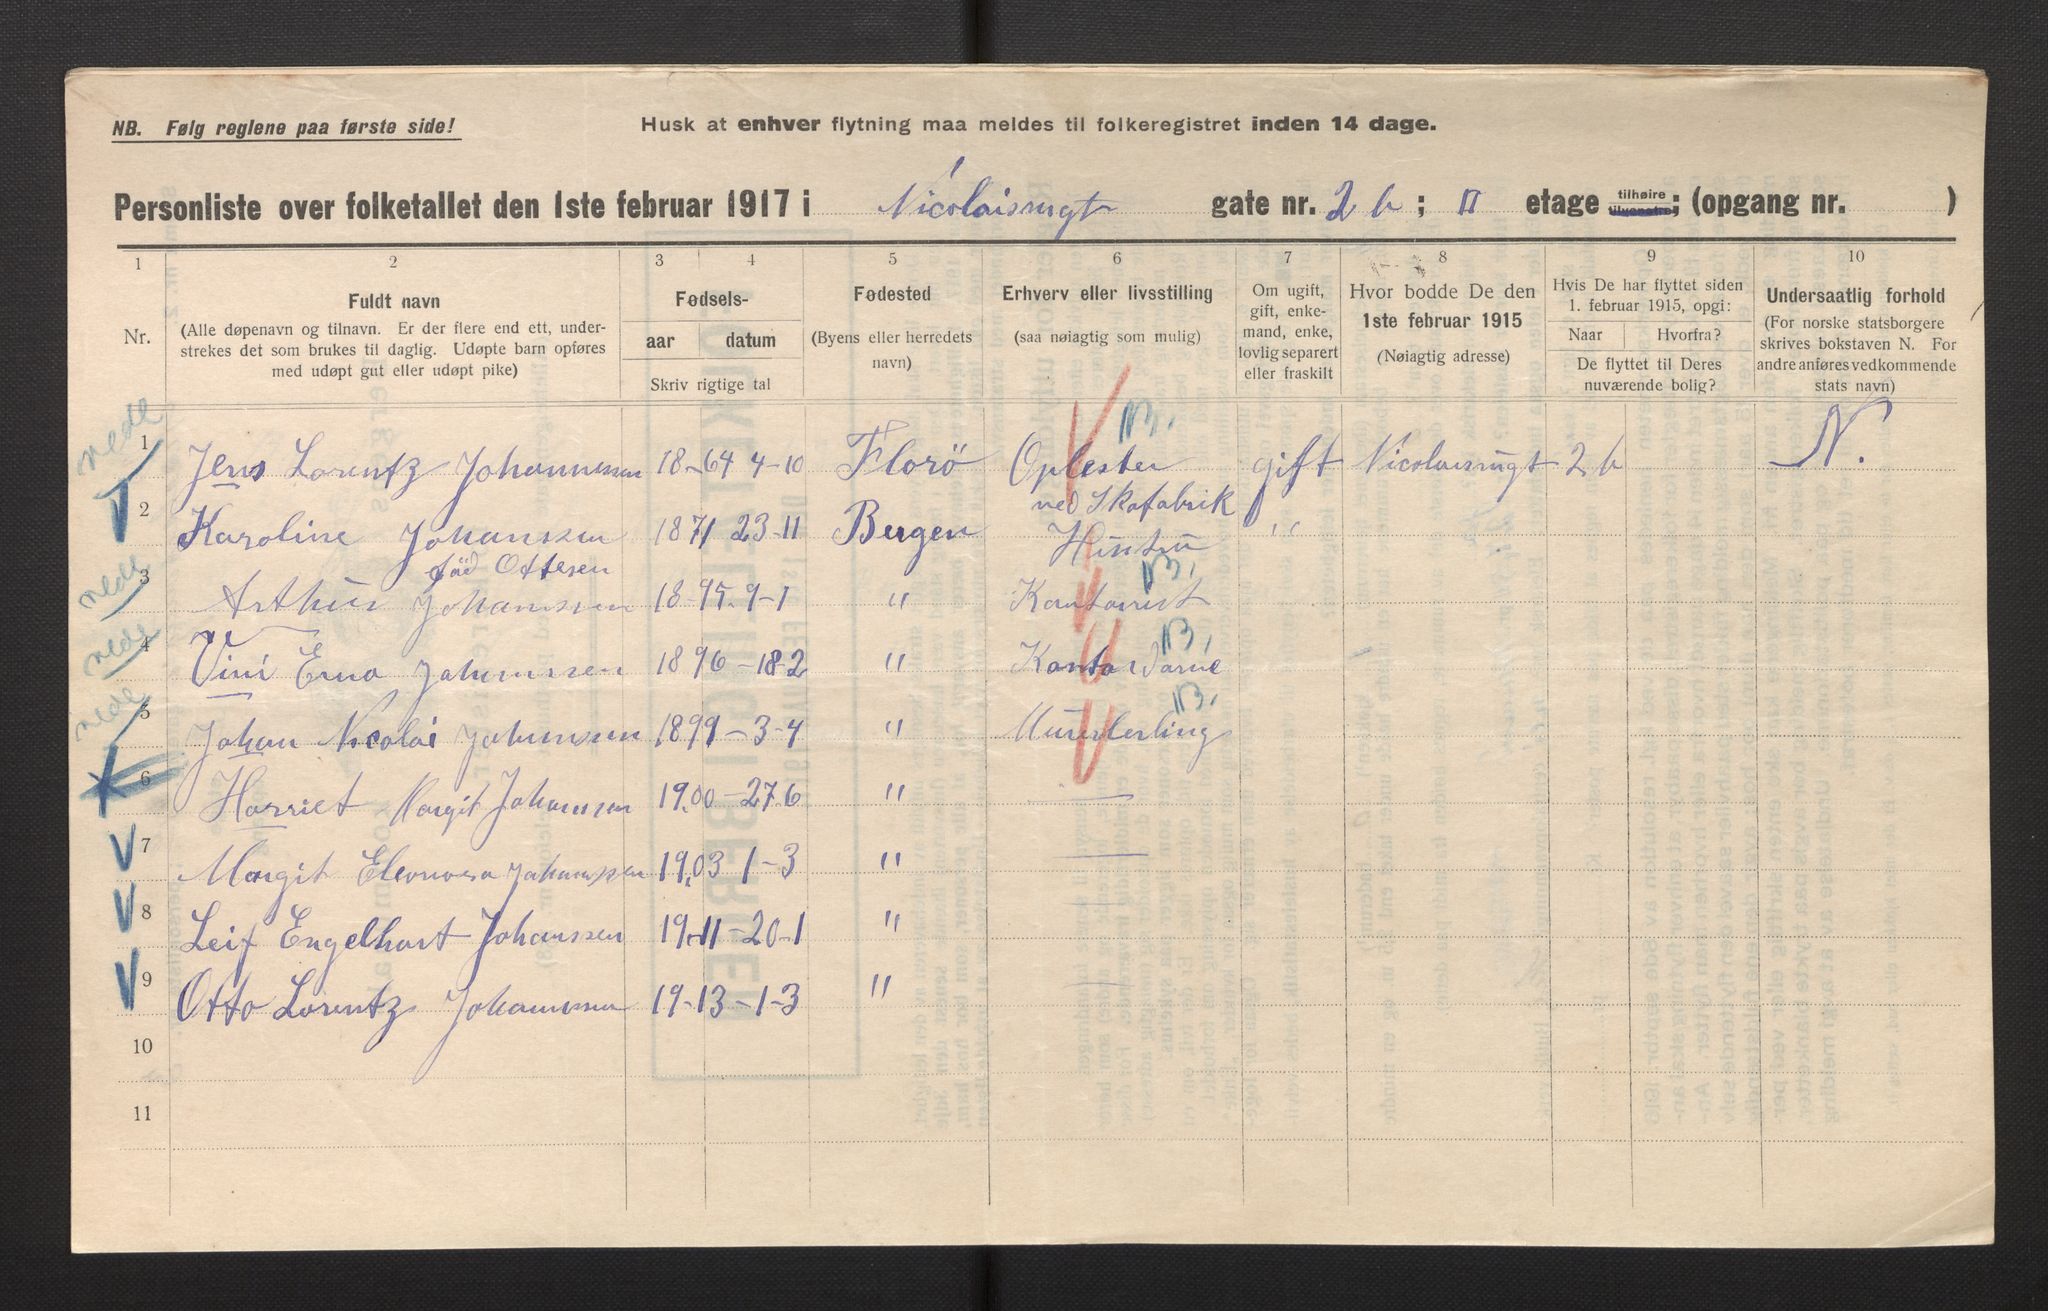 NB. Følg reglene paa første side!
Husk at enhver flytning maa meldes til folkeregistret inden 14 dage.
Personliste over folketallet den 1ste februar 1917 i Nicolaismugt gate nr. 2 b ; II etage tilhøire tilvenstre ; (opgang nr. )
1 2 3 4 5 6 7 8 9 10
Nr.
Fuldt navn
(Alle døpenavn og tilnavn. Er der flere end ett, under-
strekes det som brukes til daglig. Udøpte barn opføres
med udøpt gut eller udøpt pike)
Fødsels-
aar datum
Skriv rigtige tal
Fødested
(Byens eller herredets
navn)
Erhverv eller livsstilling
(saa nøiagtig som mulig)
Om ugift,
gift, enke-
mand, enke,
lovlig separert
eller fraskilt
Hvor bodde De den
1ste februar 1915
(Nøiagtig adresse)
Hvis De har flyttet siden
1. februar 1915, opgi:
Naar Hvorfra?
De flyttet til Deres
nuværende bolig?
Undersaatlig forhold
(For norske statsborgere
skrives bokstaven N. For
andre anføres vedkommende
stats navn)
nede
1 Jens Lorentz Johannessen 18-64 4-10 Florö Oplester NB. gift Nicolaismugt 2 b N.
ved Skofabrik
2 Karoline Johanssen 1871 23-11 Bergen Hustru "
föd Ottesen
nede
3 Arthur Johanssen 18-95. 9-1 " Kontorist NB.
nede
4 Vini Erna Johanssen 1896 - 18-2 " Kontordame NB.
nede
5 Johan Nicolai Johanssen 1899 - 3-4 " Murerlerling NB.
6 Harriet Margit Johanssen 19.00 - 27.6 " —
7 Margit Eleonora Johanssen 19.03 1-3 " —
8 Leif Engelhart Johanssen 19-11 - 20-1 " "
9 Otto Lorentz Johanssen 19-13 - 1-3 "
10
11